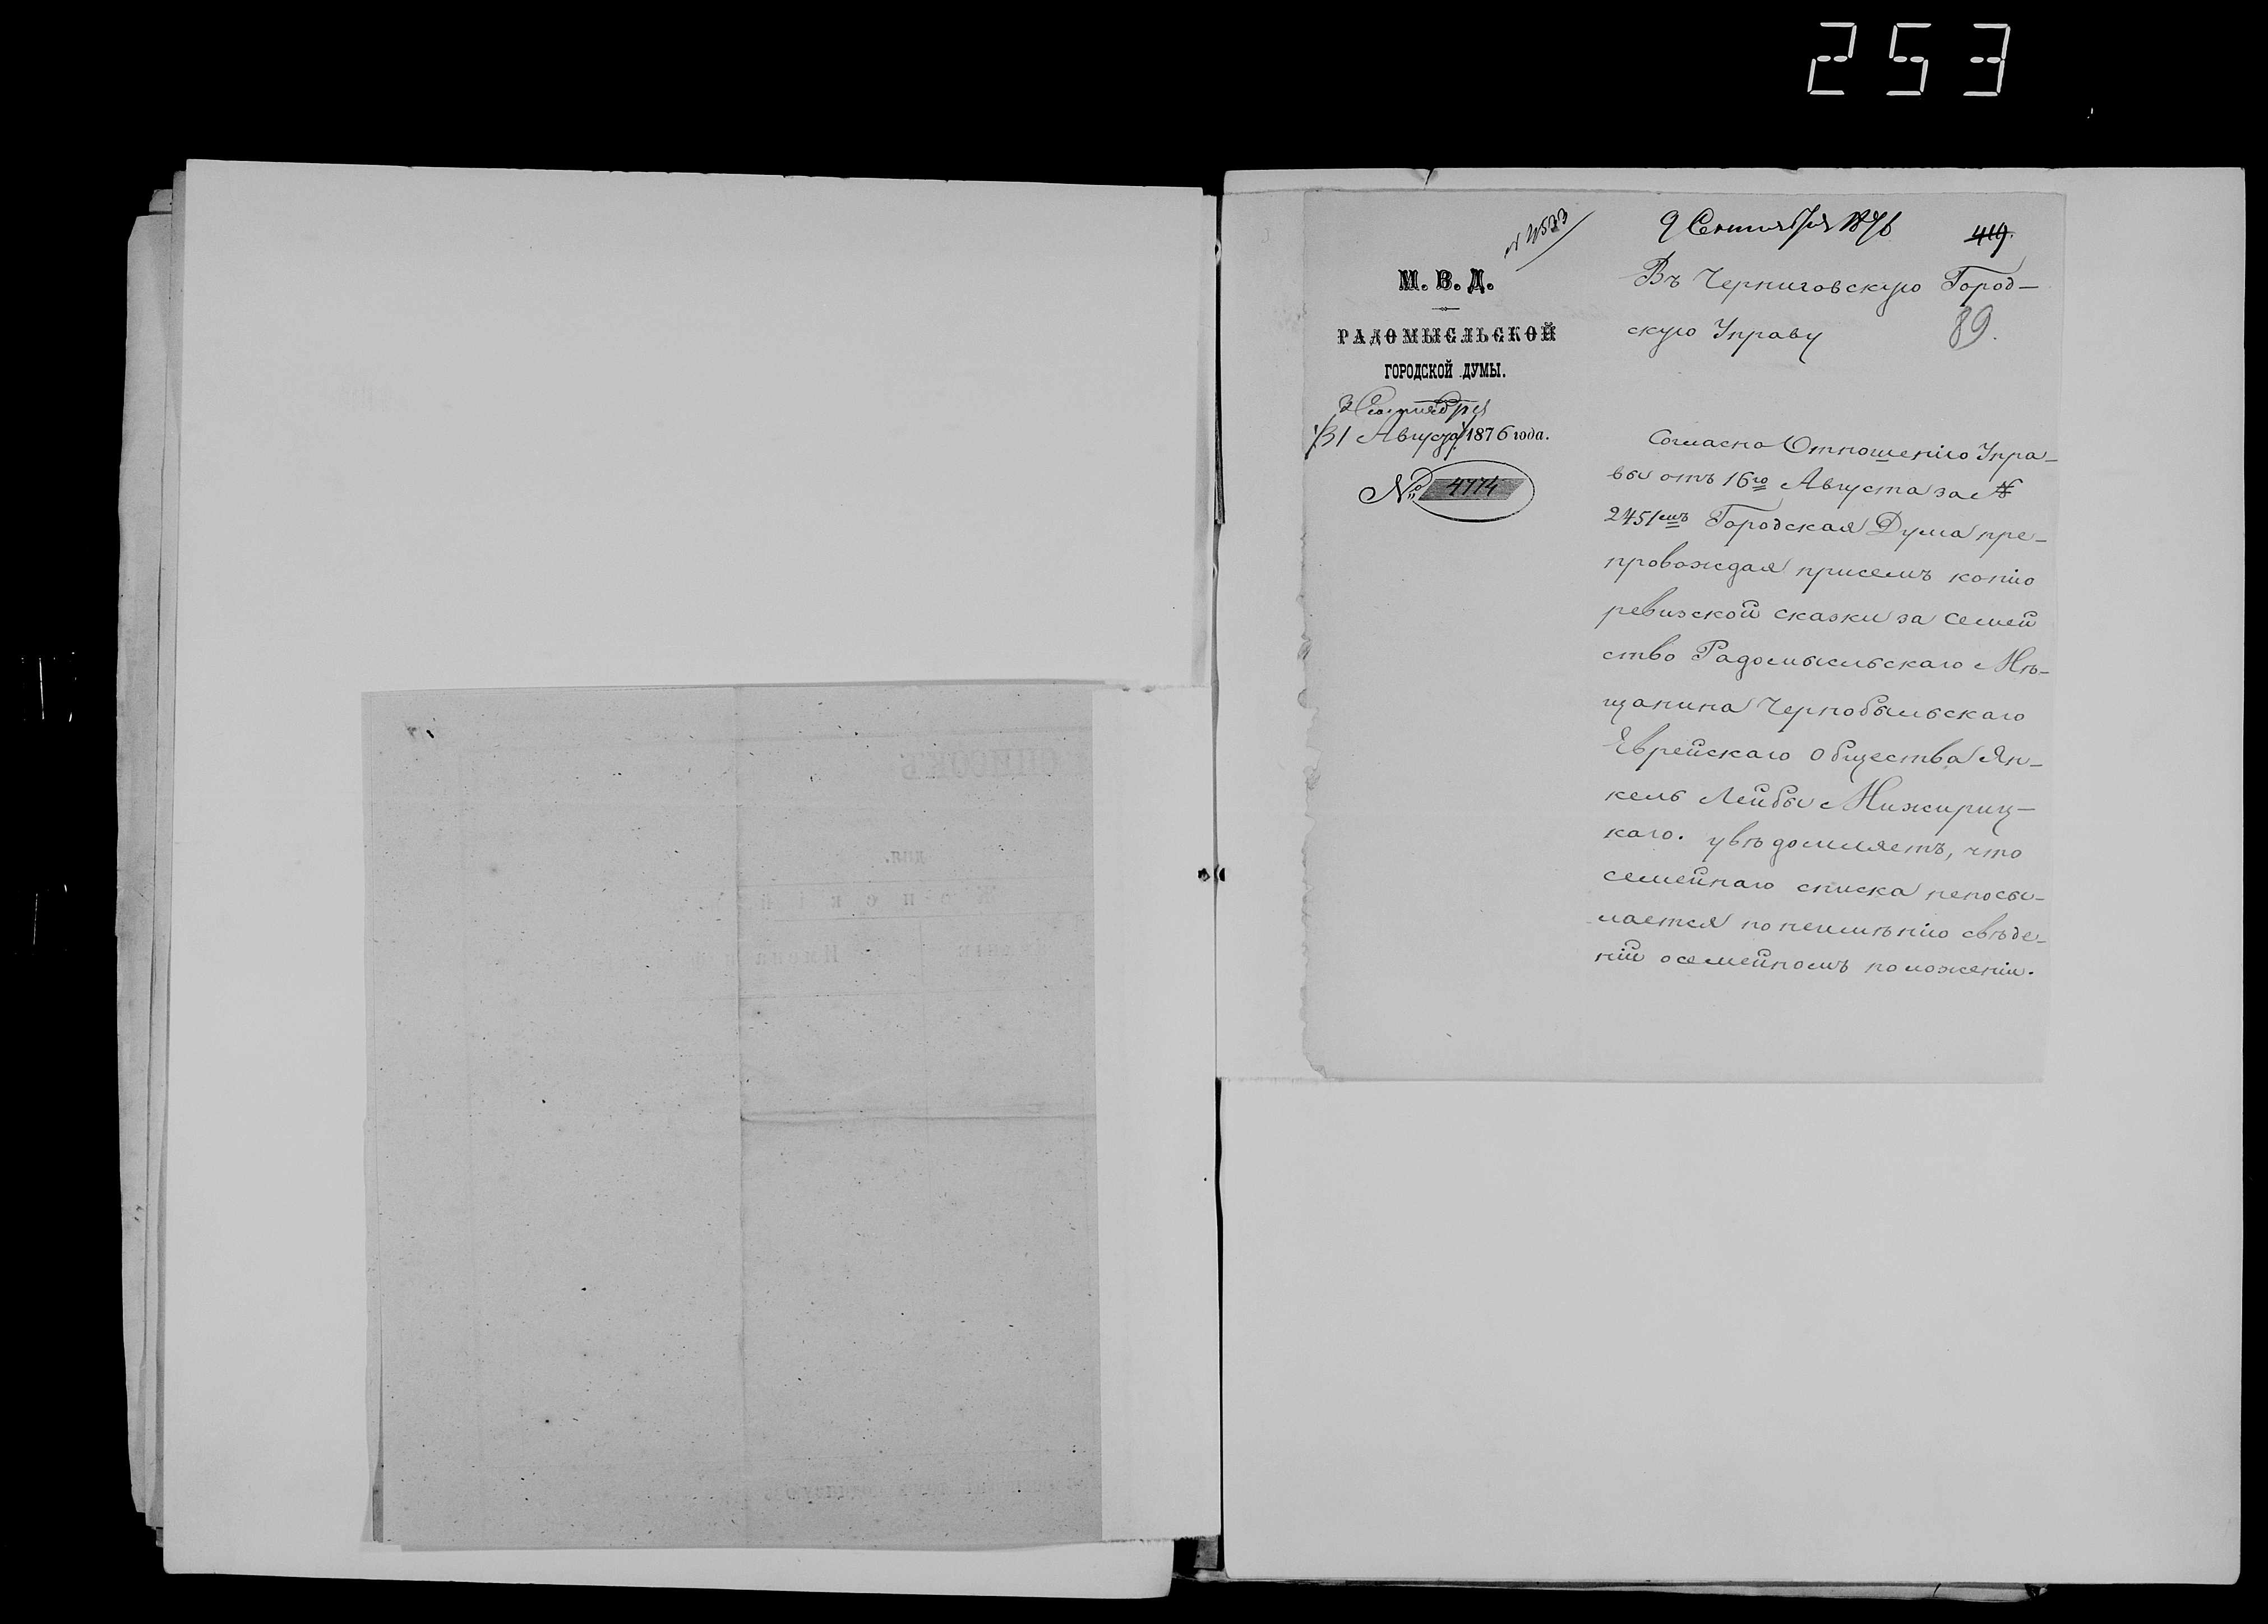 253
9 Сентября 1876
419.
М. В. Д.
РАДОМЫСЛЬСКОЙ
ГОРОДСКОЙ ДУМЫ.
3 Сентября
/31 Августа/ 1876 года.
№ 4774
Въ Черниговскую Город-
скую Управу
89.
Согласно Отношенію Упра-
вы отъ 16го Августа за №
2451мъ Городская Дума пре-
провождая присемъ копію
ревизской сказки за семей
ство Радомысльскаго Мѣ-
щанина Чернобыльскаго
Еврейскаго Общества Ян-
кель Лейбы Мижириц-
каго. увѣдомляетъ, что
семейнаго списка непосы-
лается по неимѣнію свѣде-
ній осемейномъ положеніи.
СПИСОКЪ